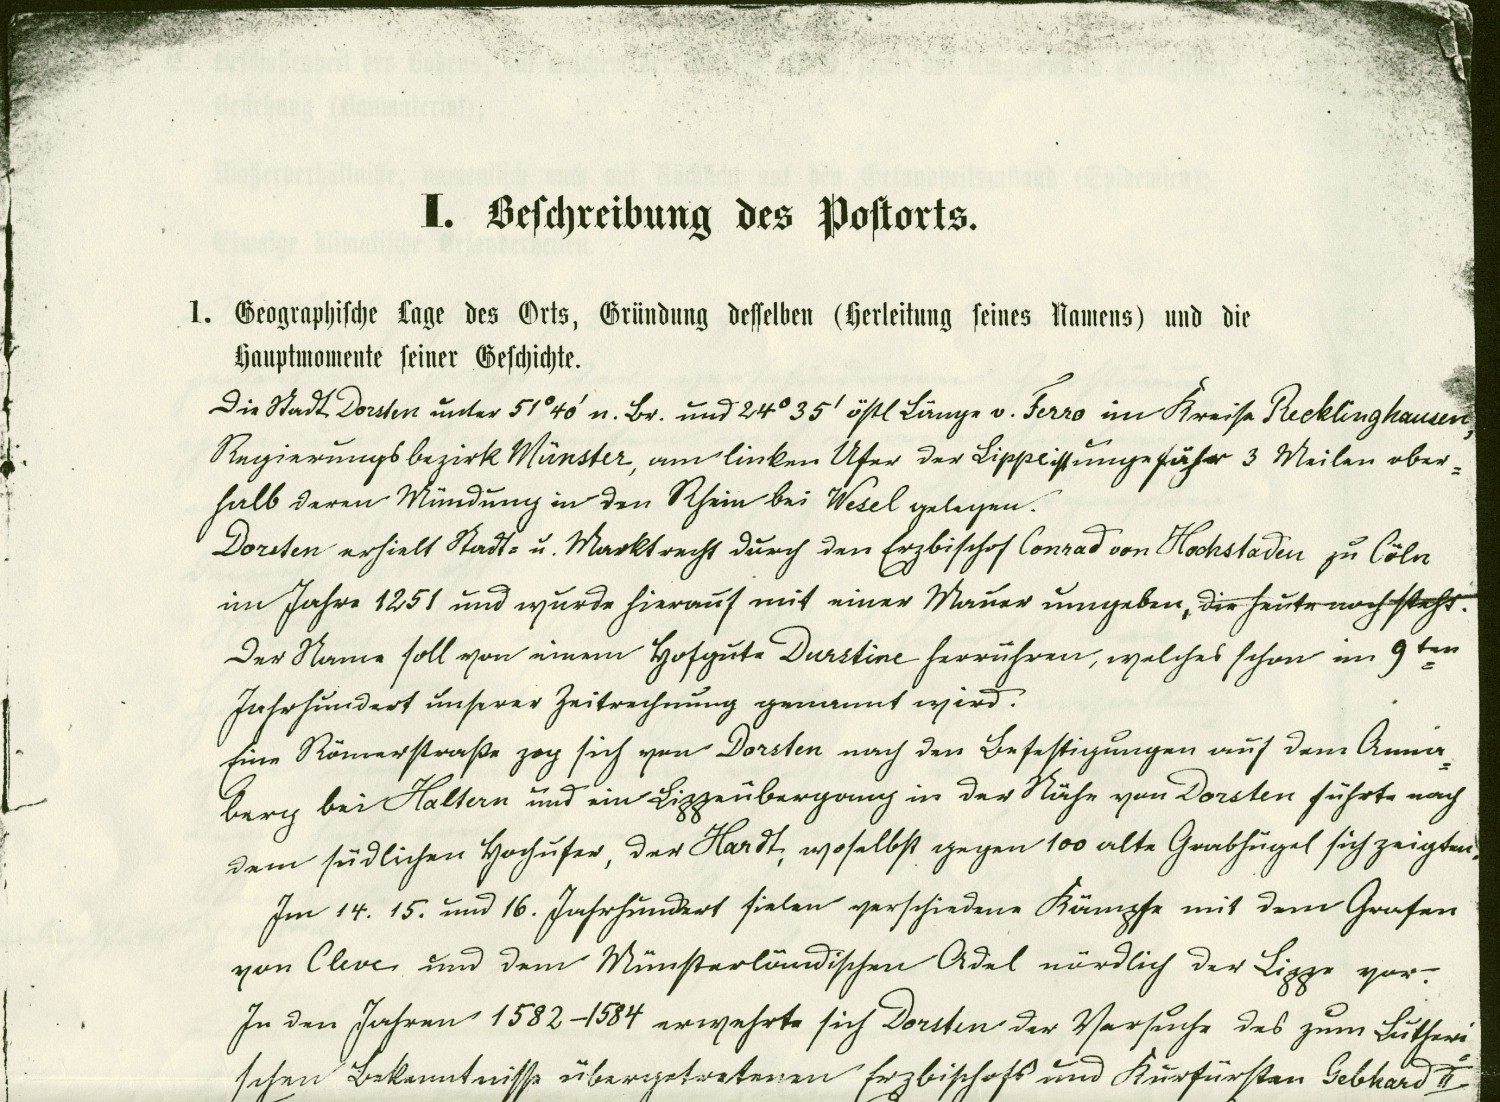 I. Beschreibung des Postorts.
1. Geographische Lage des Orts, Gründung desselben (Herleitung seines Namens) und die
Hauptmomente seiner Geschichte.
Die Stadt Dorsten unter 51° 40′ n. Br. und 24° 35′ östl Länge v. Ferro im Kreise Recklinghausen,
Regierungsbezirk Münster, am linken Ufer der Lippe ist ungefähr 3 Meilen ober=
halb deren Mündung in den Rhein bei Wesel gelegen.
Dorsten erhielt Stadt= u. Marktrecht durch den Erzbischof Conrad von Hochstaden zu Cöln
im Jahre 1251 und wurde hierauf mit einer Mauer umgeben, die heute noch steht.
Der Name soll von einem Hofgute Durstine herrühren, welches schon im 9ten
Jahrhundert unserer Zeitrechnung genannt wird.
Eine Römerstraße zog sich von Dorsten nach den Befestigungen auf dem Anna=
berg bei Haltern und ein Lippeübergang in der Nähe von Dorsten führte nach
dem südlichen Hochufer, der Hardt, woselbst gegen 100 alte Grabhügel sich zeigten.
Im 14. 15. und 16. Jahrhundert fielen verschiedene Kämpfe mit dem Grafen
von Cleve und dem Münsterländischen Adel nördlich der Lippe vor.
In den Jahren 1582-1584 erwehrte sich Dorsten der Versuche des zum Lutheri
schen Bekenntnisse übergetretenen Erzbischofs und Kurfürsten Gebhard II